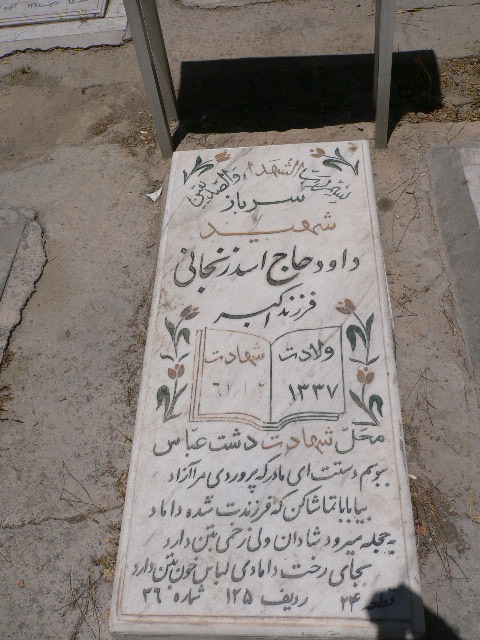 بسم رب الشهداء والصدیقین
سرباز
شهید
داود حاج اسد زنجانی
فرزند اکبر
ولادت شهادت
۱۳۳۷ ۶۱/۱/۲
محل شهادت دشت عباس
ببوسم دستت ای مادر که پروردی مرا آزاد
بیا بابا تماشا کن که فرزندت شده داماد
به حجله میرود شادان ولی زخمی بتن دارد
بجای رخت دامادی لباس خون بتن دارد
قطعه ۲۴ ردیف ۱۲۵ شماره ۳۶